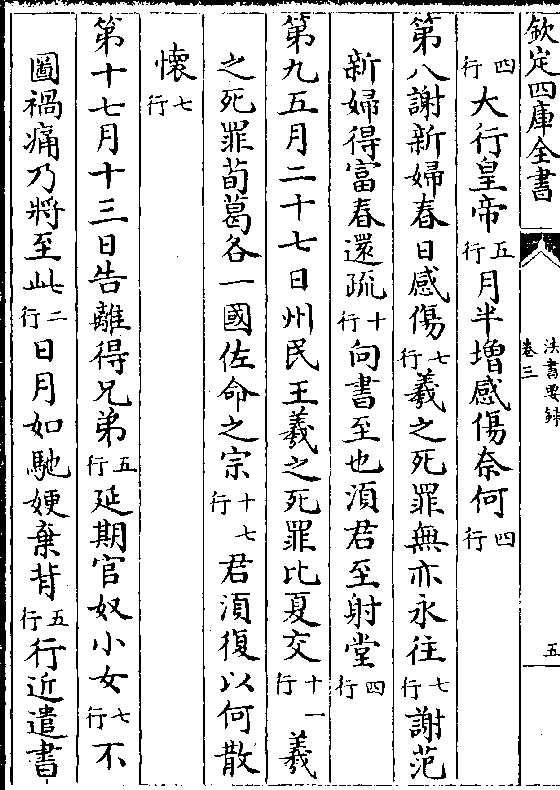 欽定四庫全書
法書要錄
卷三
五
四行大行皇帝五行月半增感傷奈何四行
第八謝新婦春日感傷七行羲之死罪無亦永往七行謝范
新婦得富春還疏十行向書至也須君至射堂四行
第九五月二十七日州民王羲之死罪比夏交十一行羲
之死罪荀葛各一國佐命之宗十七行君須復以何散
懷七行
第十七月十三日告離得兄弟五行延期官奴小女七行不
圖禍痛乃將至此二行日月如馳㛐棄背五行行近遣書十